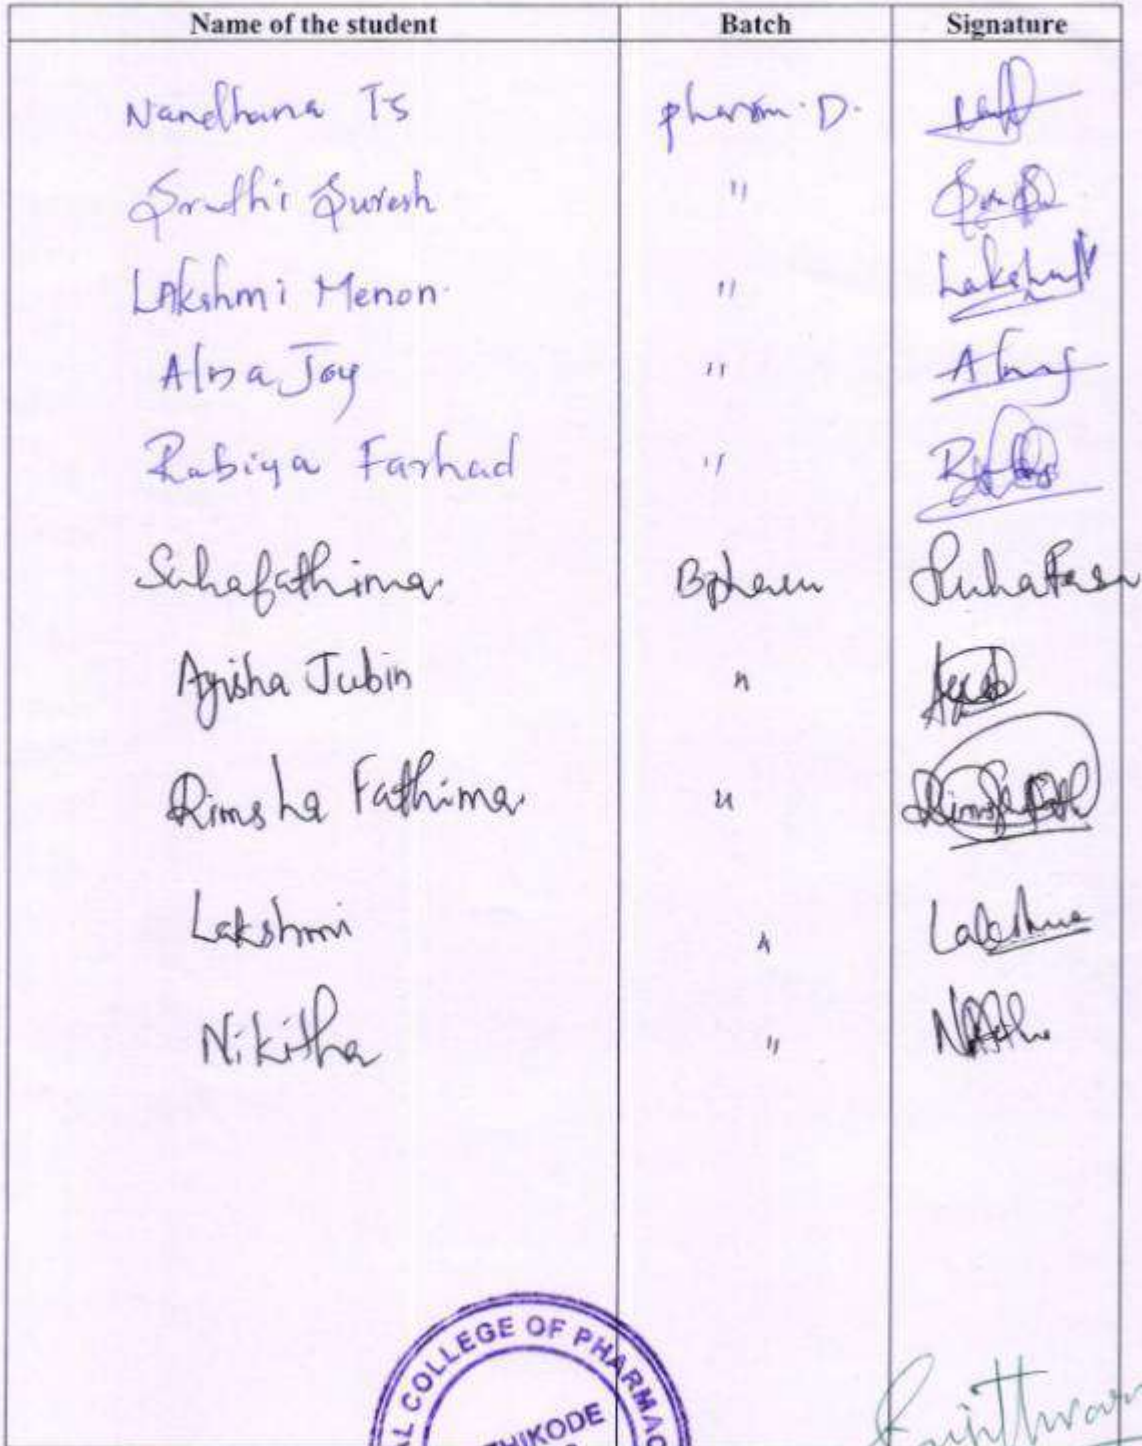 Name of the student Batch Signature
Nandhana TS pharm.D.
Sruthi Suresh "
LAkshmi Menon "
Alna Joy "
Rabiya Farhad "
Suhafathima Bpharm
Ayisha Jubin "
Rimsha Fathima "
Lakshmi " Lakshmi
Nikitha "
AL COLLEGE OF PHARMAC
HIKODE